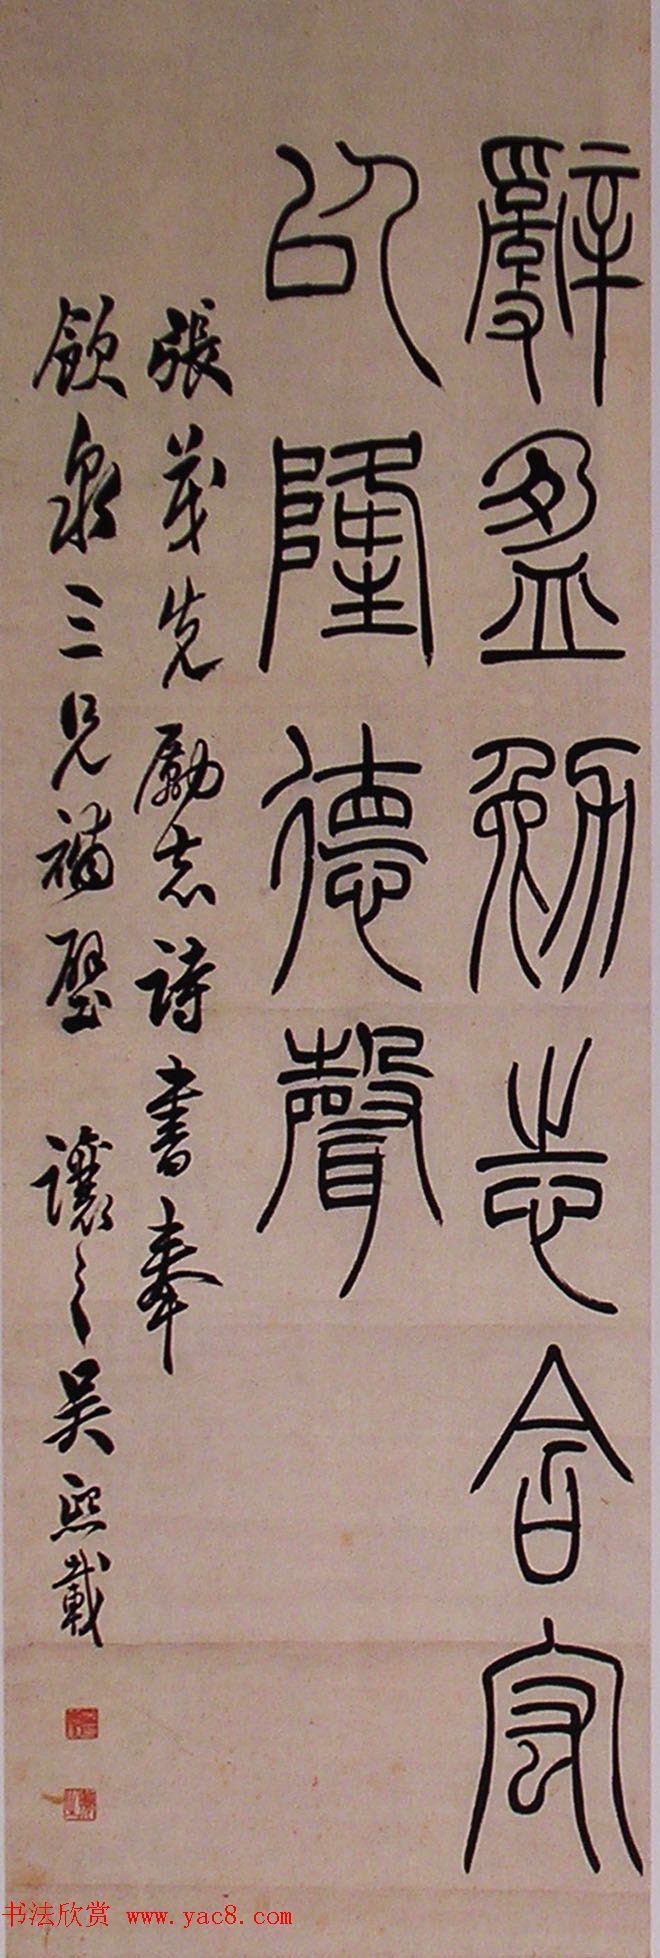 辭盈勉志含宏
以隆德聲
張茂先勵志詩書奉
飲泉三兄補壁 讓之吳熙載
书法欣赏 www.yac8.com